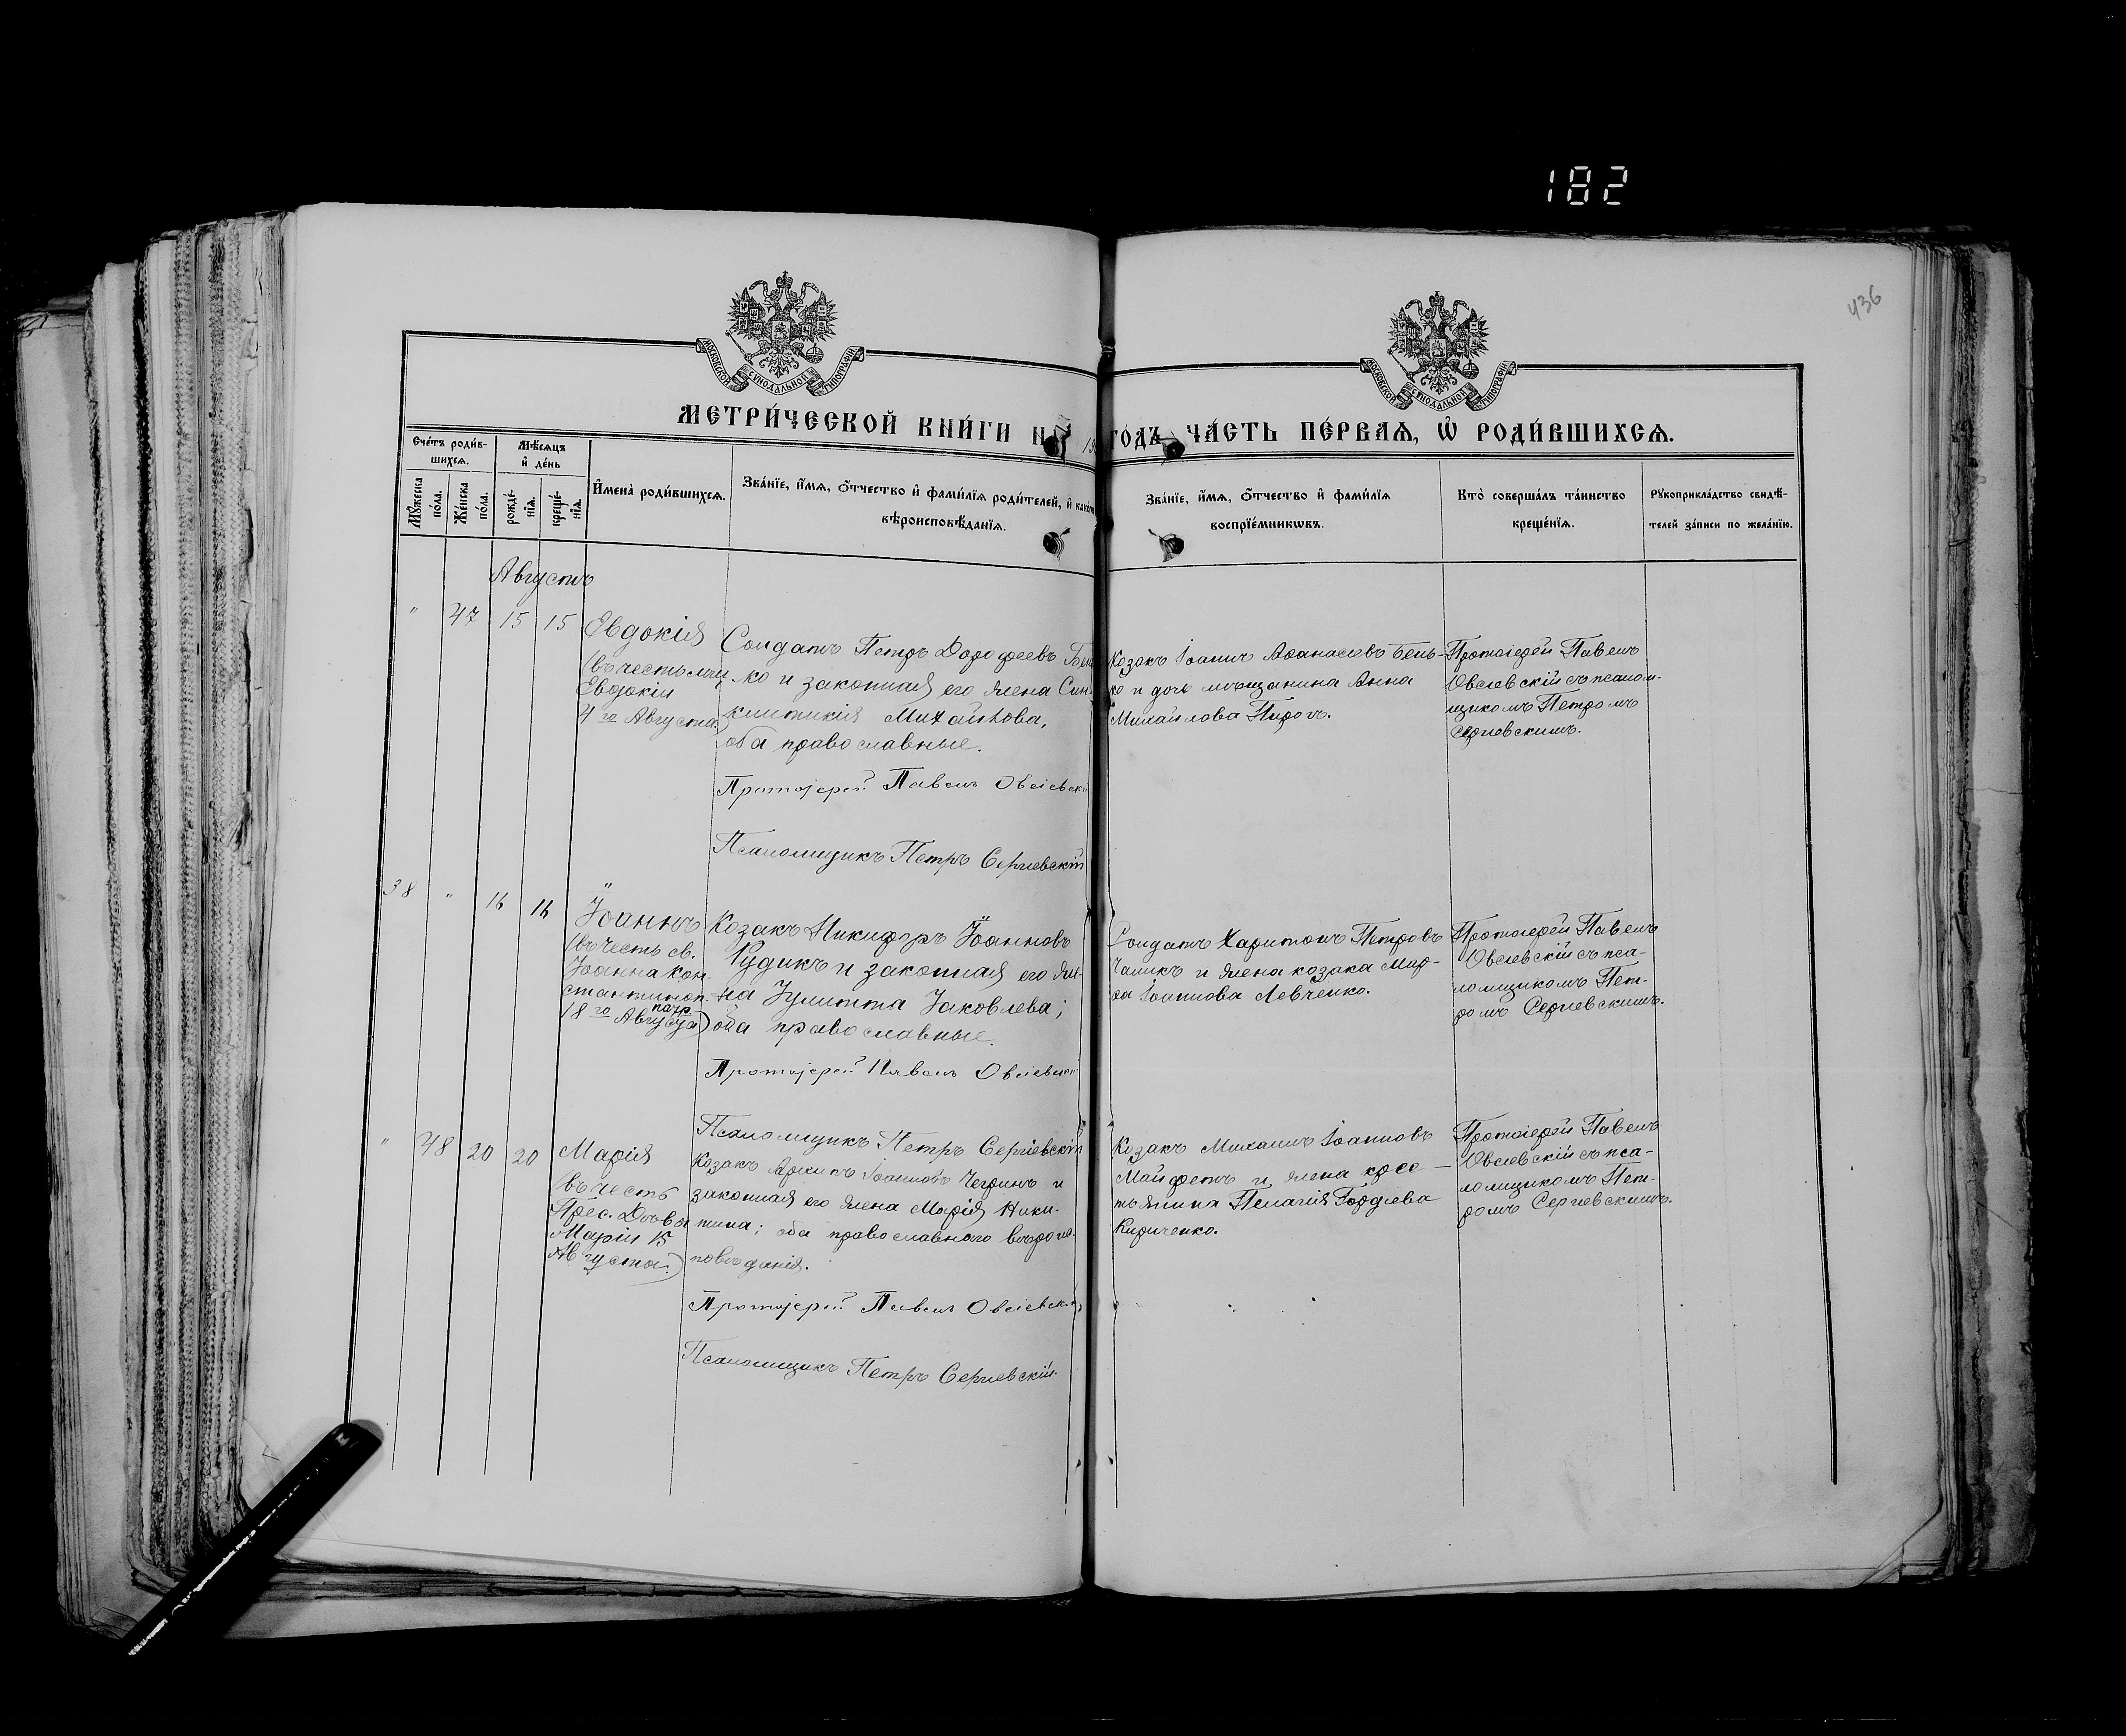 182
436
МОСКОВСКОЙ СѴНОДАЛЬНОЙ ТИПОГРАФІИ
МОСКОВСКОЙ СѴНОДАЛЬНОЙ ТИПОГРАФІИ
МЕТРИ́ЧЕСКОЙ КНИ́ГИ НА 19 ГО́ДЪ ЧА́СТЬ ПЕ́РВАѦ, Ѡ҆ РОДИ́ВШИХСѦ.
Сче́тъ роди́в-
шихсѧ.
Мꙋ́жеска по́ла.
Же́нска по́ла.
Мѣ́сѧцъ
и҆ де́нь
рожде́-
нїѧ.
креще́-
нїѧ.
И҆мена̀ роди́вшихсѧ.
Зва́нїе, и҆́мѧ, ѻ҆́тчество и҆ фами́лїѧ роди́телей, и҆ како́гѡ
вѣроисповѣ́данїѧ.
Зва́нїе, и҆́мѧ, ѻ҆́тчество и҆ фами́лїѧ
воспрїе́мникѡвъ.
Кто̀ соверша́лъ та́инство
креще́нїѧ.
Рꙋкоприкла́дство свидѣ́-
телей за́писи по жела́нїю.
Августъ
" 47 15 15
Евдокія
(въ честь мчц.
Евдокіи
4го Августа)
Солдатъ Петръ Дорофеевъ Бень-
ко и законная его жена Син-
клитикія Михайлова,
оба православные.
Протоіерей Павелъ Овсіевскій
Псаломщикъ Петръ Сергіевскій
Козакъ Іоаннъ Аѳанасіевъ Бень-
ко и дочь мѣщанина Анна
Михайлова Пирогъ.
Протоіерей Павелъ
Овсіевскій съ псалом-
щикомъ Петромъ
Сергіевскимъ.
38 " 16 16
Іоаннъ
(въ честь св.
Іоанна Кон-
стантиноп.
патр.
18го Августа)
Козакъ Никифоръ Іоанновъ
Рудикъ и законная его же-
на Іулитта Іаковлева;
оба православные.
Протоіерей Павелъ Овсіевскій
Псаломщикъ Петръ Сергіевскій
Солдатъ Харитонъ Петровъ
Чаликъ и жена козака Мар-
ѳа Іоаннова Левченко.
Протоіерей Павелъ
Овсіевскій съ пса-
ломщикомъ Пет-
ромъ Сергіевскимъ.
" 48 20 20
Марія
(въ честь
Прес. Дѣвы
Маріи 15
Августа.)
Козакъ Архипъ Іоанновъ и
законная его жена Марія Ники-
тина; оба православнаго вѣроис-
повѣданія.
Протоіерей Павелъ Овсіевскій
Псаломщикъ Петръ Сергіевскій.
Козакъ Михаилъ Іоанновъ
Майфетъ и жена крес-
тьянина Пелагія Гордіева
Кириченко.
Протоіерей Павелъ
Овсіевскій съ пса-
ломщикомъ Пет-
ромъ Сергіевскимъ.